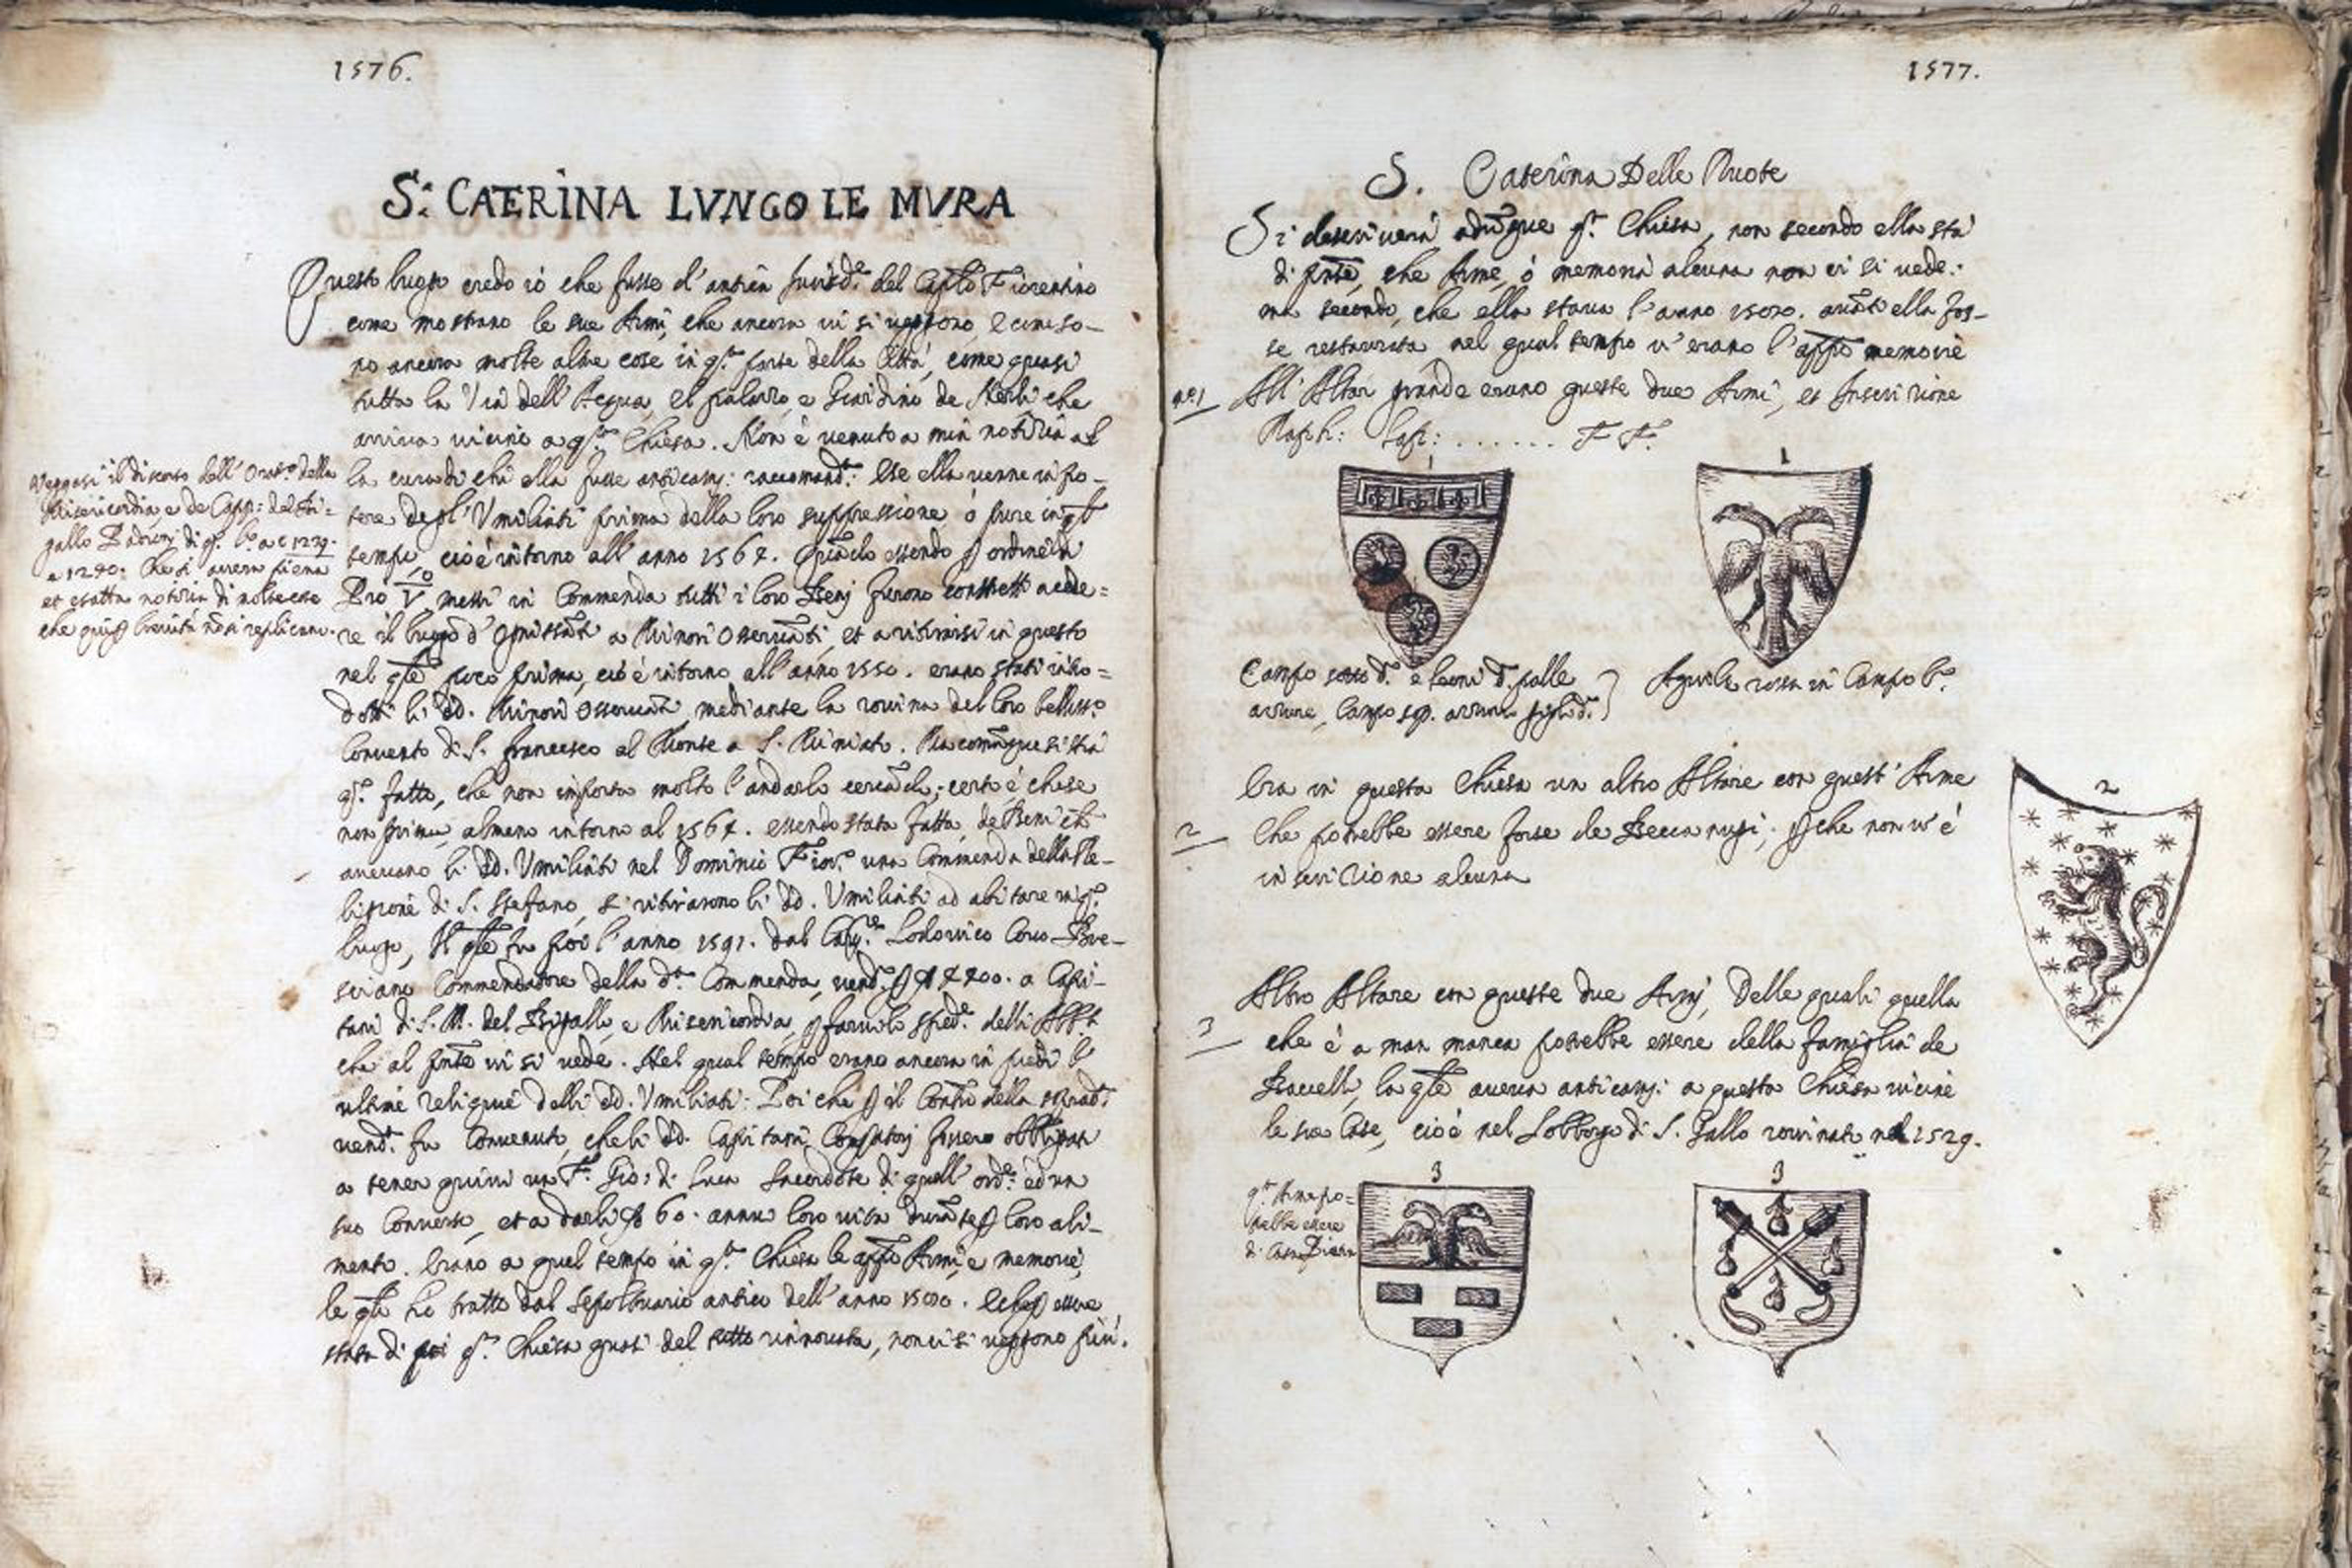 1576.
S.ª CATERINA LVNGO LE MVRA
Questo luogo credo io che fusse d'antica Iurisd.e del Caplo Fiorentino
come mostrano le sue Armi, che ancora vi si veggono, e come so-
no ancora molte altre cose in q.ta parte della Città, come quasi
tutta la Via dell'Acqua, el palazzo, e Giardino de Nerli che
arriva vicino a q.ta Chiesa. Non è venuto a mia notizia al
la cura di chi ella fusse anticam: raccomand.ta: Ese ella venne in po-
tere degl'Vmiliati prima della loro suppressione ò pure in
tempo, cioè intorno all'anno 1567. essendo ordine di
Pio V. messi in Commenda tutti i loro Beni furono constretti a cede=
re il luogo d'Ognissanti a Minori Osservanti, et a ritirarsi in questo
nel qle poco prima, cioè intorno all'anno 1550. erano stati rido=
dotti li dd. Minori Osservanti, mediante la rovina del loro belliss.o
Convento di S. Francesco al Monte a S. Miniato. Ma comunque si stia
q.to fatto, che non importa molto l'andarlo cercando; certo è che se
non prima, almeno intorno al 1567. essendo stata fatta de Beni ch
avevano li dd. Vmiliati nel Dominio Fior.no una Commenda della Re-
ligione di S. Stefano, si ritirarono li dd. Vmiliati ad abitare in q.to
luogo, Il qle fu poi l'anno 1591. dal Cav.re Lodovico Bre-
sciano Commendatore della d.ta Commenda, vend.to 400. a Capi-
tani di S. M. del Bigallo, e Misericordia, farvi lo sped.e delli Abb.ti
che al pnte vi si vede. Nel qual tempo erano ancora in piedi l'
ultime reliquie delli dd. Vmiliati: Poi che il Contto della soprad.ta
vend.ta fu convenuto, che li dd. Capitani Compratori fossero obbligati
a tener quivi un F. Gio: di Luca Sacerdote di quell'ord.e ed un
suo Converso, et a darli 60. annui loro vita durante loro ali-
mento. Erano a quel tempo in q.ta Chiesa le appo Armi, e memorie,
le qli ho tratto dal Sepoltuario antico dell'anno 1500. essere
stata di poi q.ta Chiesa quasi del tutto rinnovata, non vi si veggono più.
Veggasi il discorso dell'Orat.o della
Misericordia, e de Capp: del Bi=
gallo Padroni di q.to l.o a c 1239.
e 1240. che si avera piena
et esatta notizia di molte cose
che qui brevità nò si replicano.
1577.
S. Caterina Delle Ruote
Si descriverà adunque q.ta Chiesa, non secondo ella stà
di pnte, che Arme, ò memoria alcuna non vi si vede:
ma secondo, che ella stava l'anno 1500. avanti ella fos-
se restaurata nel qual tempo v'erano l'appo memorie
n.o 1
All'Altar grande erano queste due Armi, et Inscrizione
....... F F.
1
1
Campo sotto d.o e leoni d.o palle
azzurre, Campo sop. azzurro gigli d.o
Aquila rossa in Campo b.o
2
Era in questa Chiesa un altro Altare con quest'Arme
Che potrebbe essere forse de Beccanugi; che non v'è
inscrizione alcuna
2
3
Altro Altare con queste due Armi, Delle quali quella
che è a man manca potrebbe essere della famiglia de
la qle aveva anticam: a questa Chiesa vicine
le sue Case, cioè nel Sobborgo di S. Gallo rovinato nel 1529.
q.ta Arme po=
trebbe essere
di Casa
3
3